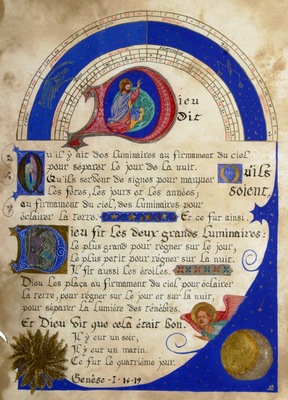 Dieu
Dit
Qu'il y ait des luminaires au firmament du ciel
pour séparer le jour de la nuit.
Qu'ils servent de signes pour marquer
les fêtes, les jours et les années;
Qu'ils
soient,
au firmament du ciel, des luminaires pour
éclairer la terre. Et ce fut ainsi.
Dieu fit les deux grands luminaires:
Le plus grand pour régner sur le jour,
le plus petit pour régner sur la nuit.
Il fit aussi les étoiles.
Dieu les plaça au firmament du ciel pour éclairer
la terre, pour régner sur le jour et sur la nuit,
pour séparer la lumière des ténèbres.
Et Dieu vit que cela était bon.
Il y eut un soir,
Il y eut un matin.
Ce fut le quatrième jour.
Genèse - 1 - 14 - 19